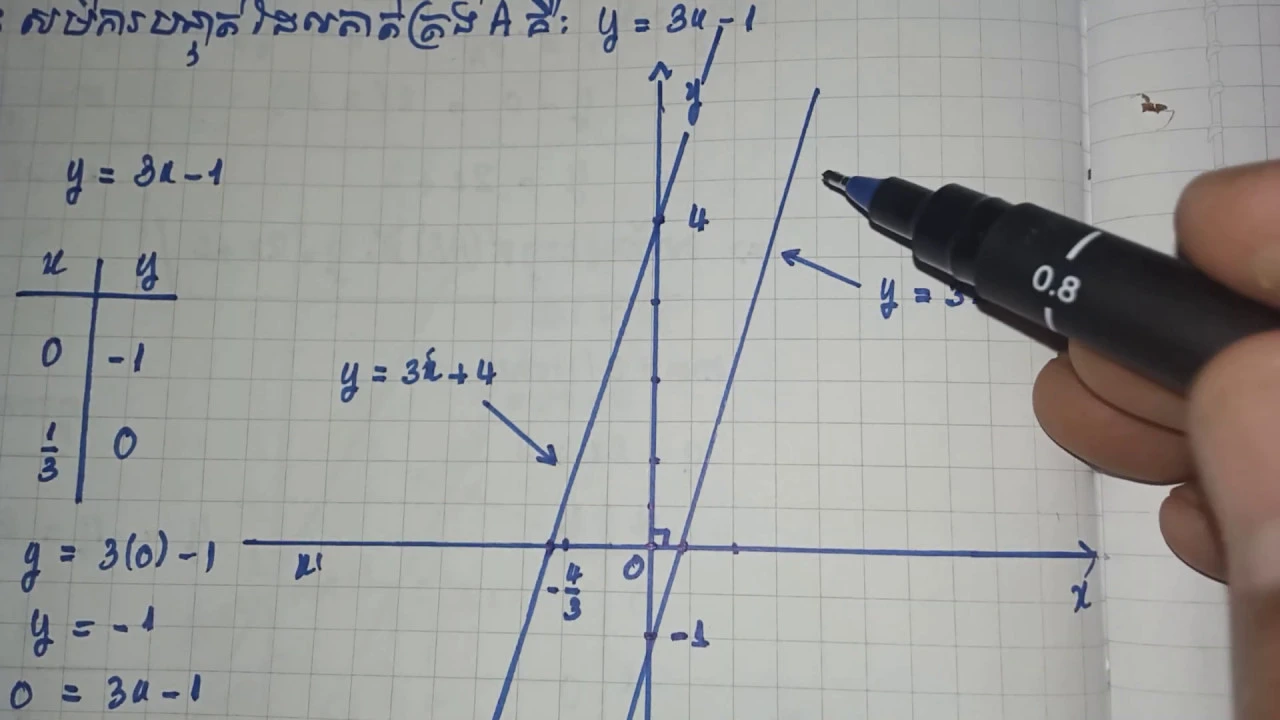 : សមីការបន្ទាត់ដែលកាត់ត្រង់ A គឺ: y = 3x - 1
y
y = 3x - 1
4
x y
y = 3
0.8
0 -1
y = 3x + 4
1/3 0
y = 3(0) - 1
x'
0
-4/3
x
y = -1
-1
0 = 3x - 1